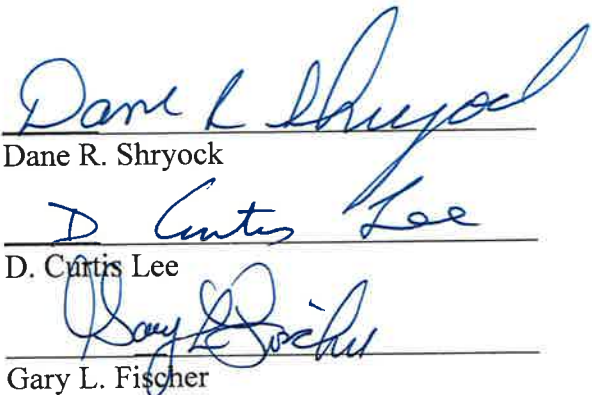 Dane R Shryock
Dane R. Shryock
D Curtis Lee
D. Curtis Lee
Gary L Fischer
Gary L. Fischer